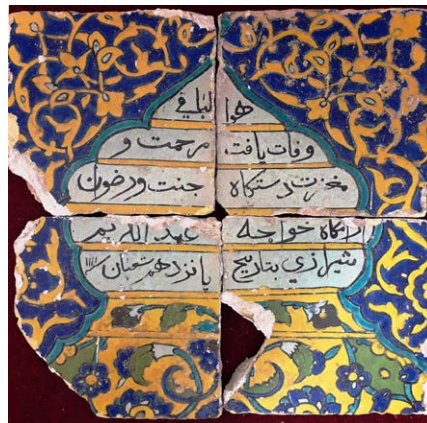 هو الباقی
وفات یافت مرحمت و
مغفرت دستگاه جنت و رضوان
آرامگاه خواجه عبدالله
شیرازی بتاریخ پانزدهم شعبان